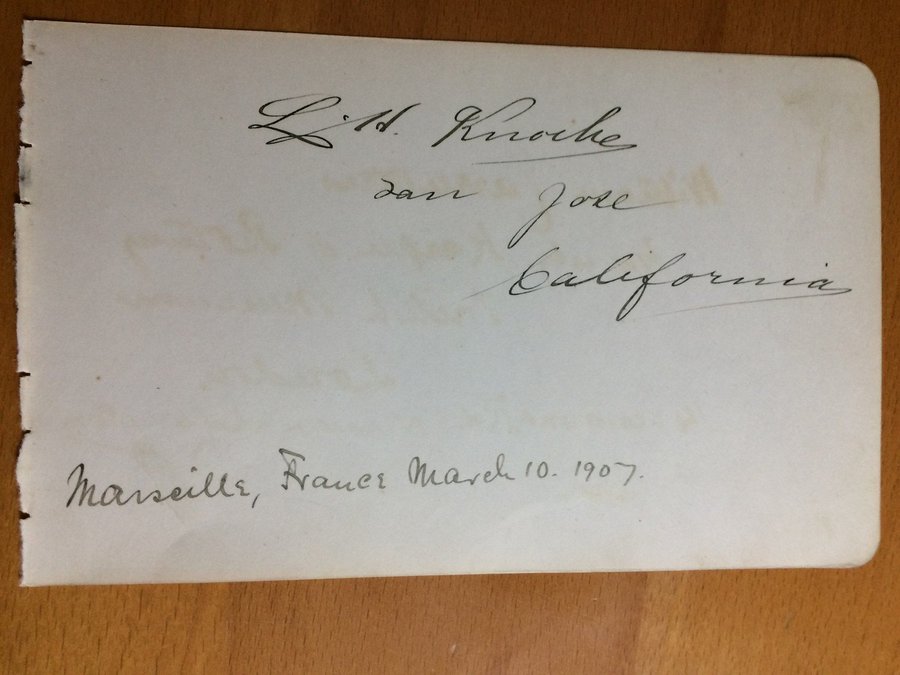 L. H. Knoche
San Jose
California
Marseille, France March 10. 1907.